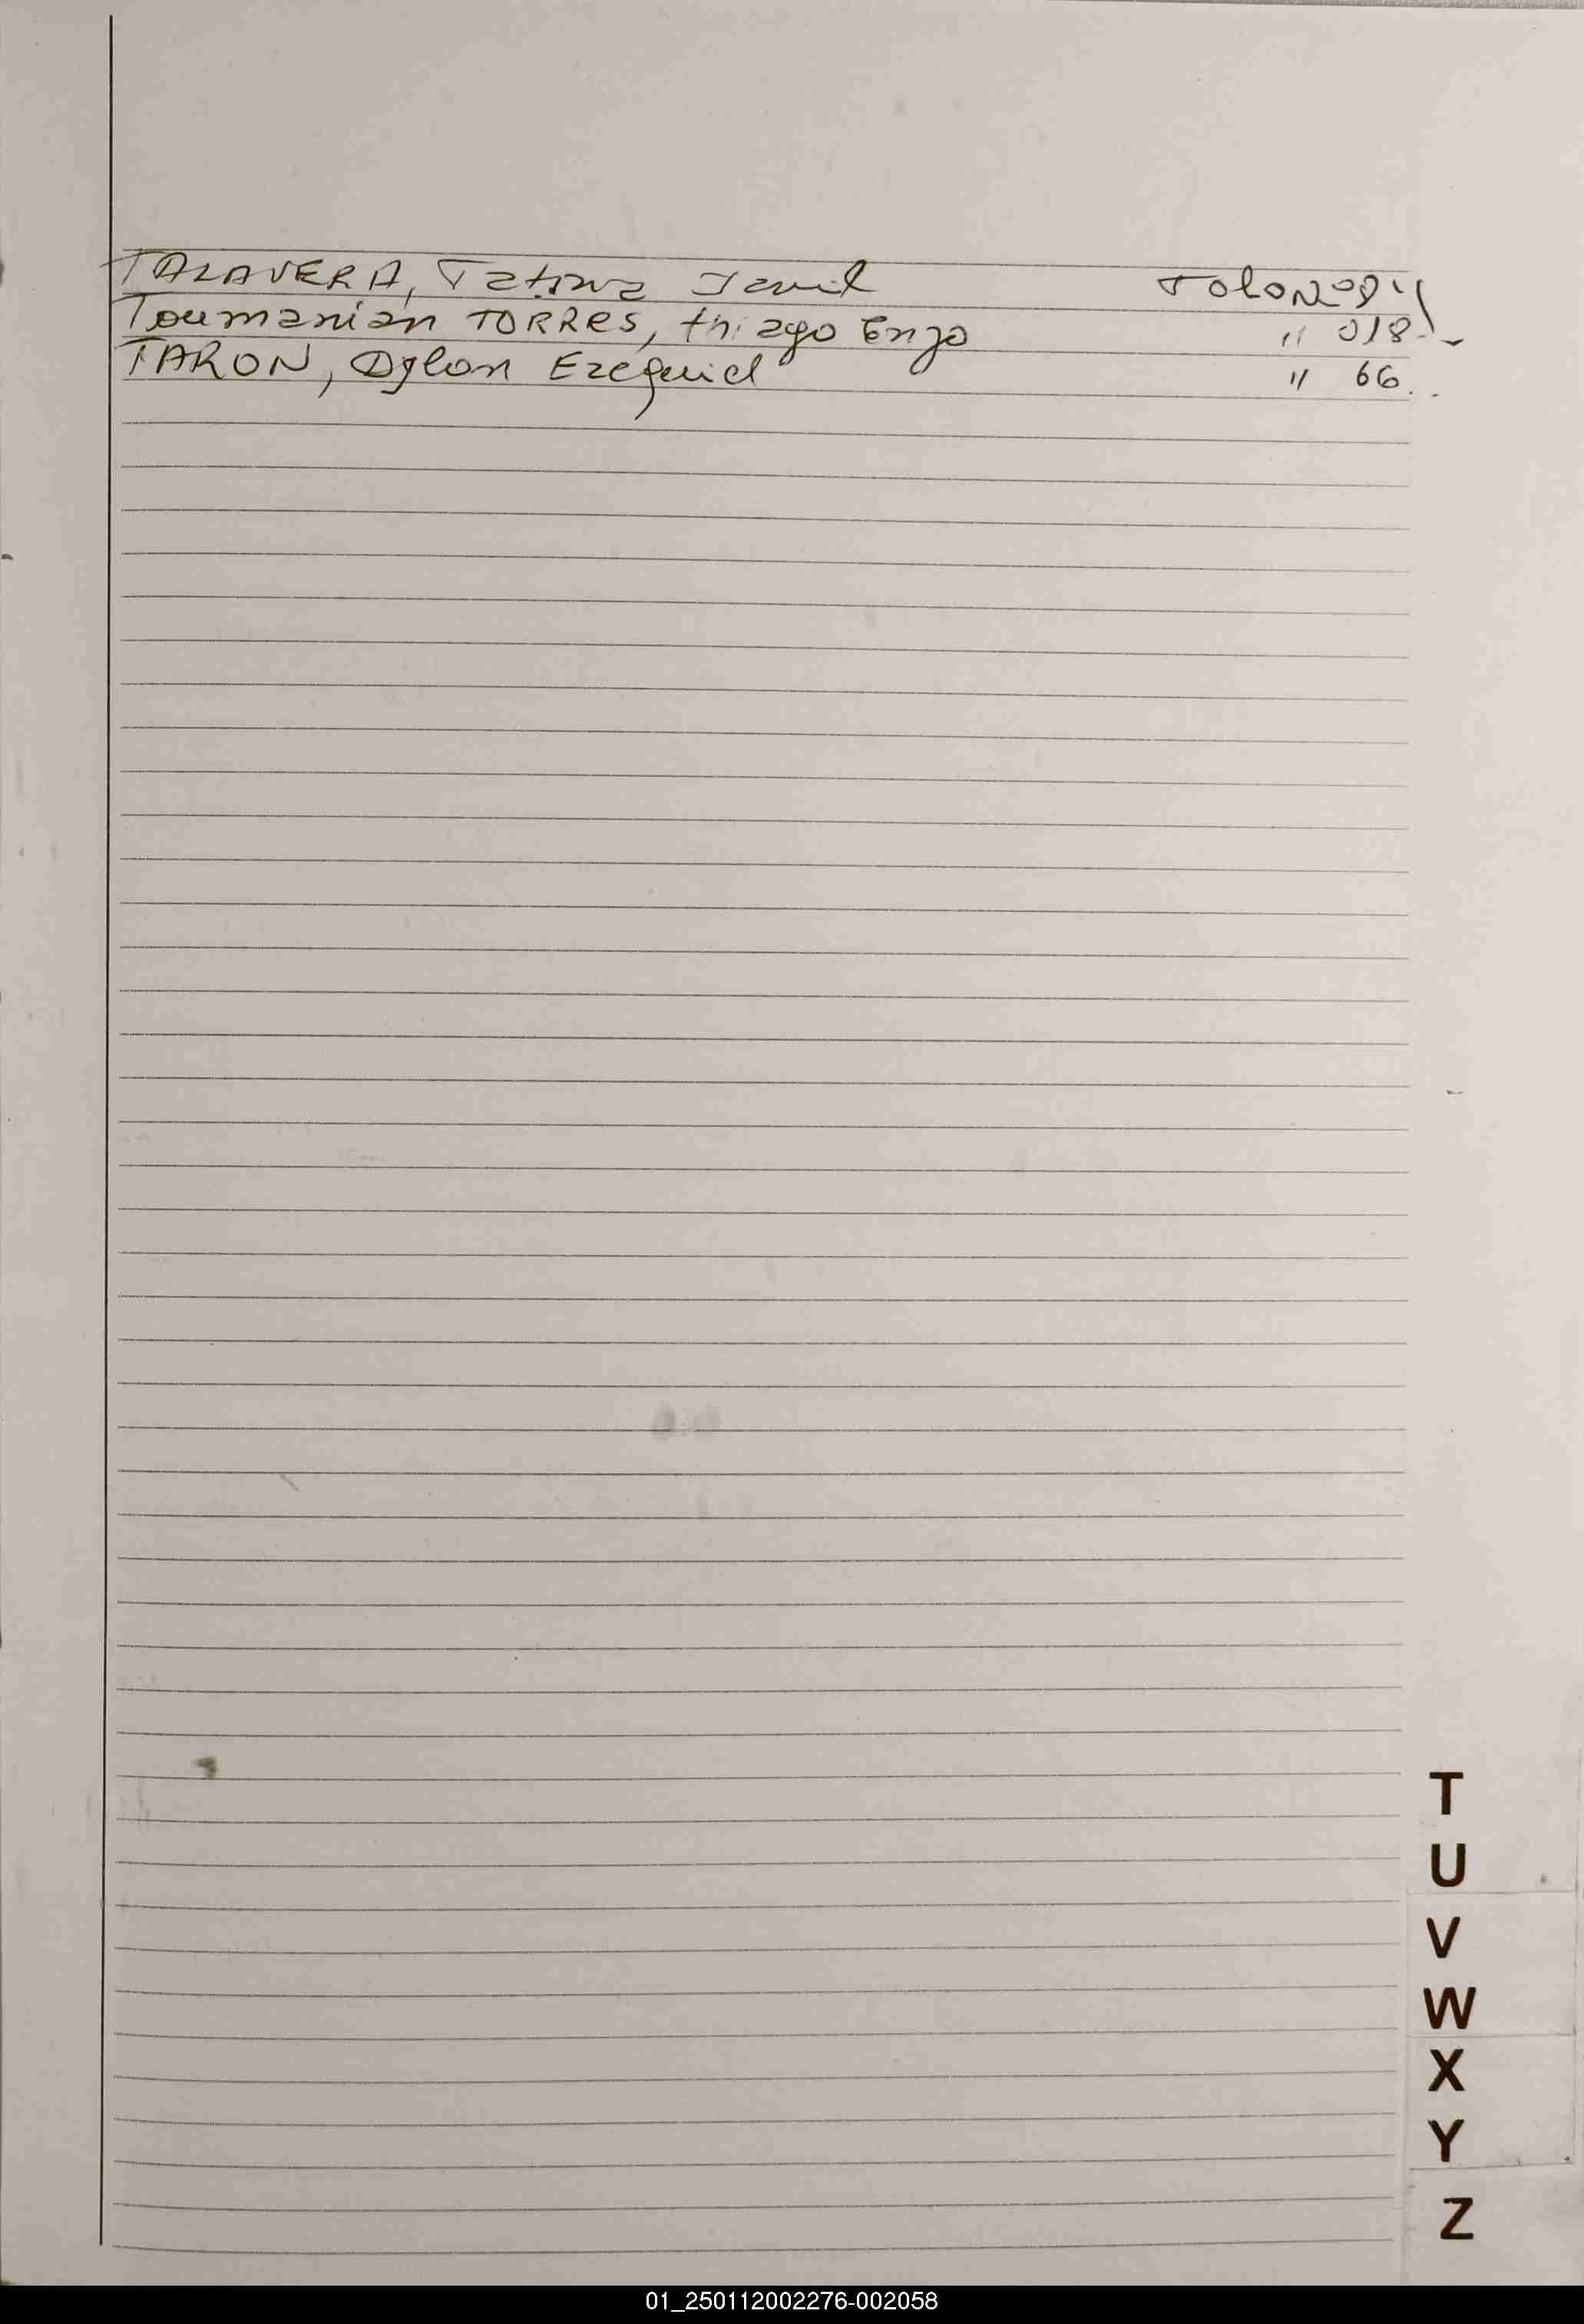 TALAVERA, Tatiana
Toumanian TORRES, thiago Enzo " 018-
TARON, Dylan Ezequiel " 66.
T
U
V
W
X
Y
Z
01_250112002276-002058